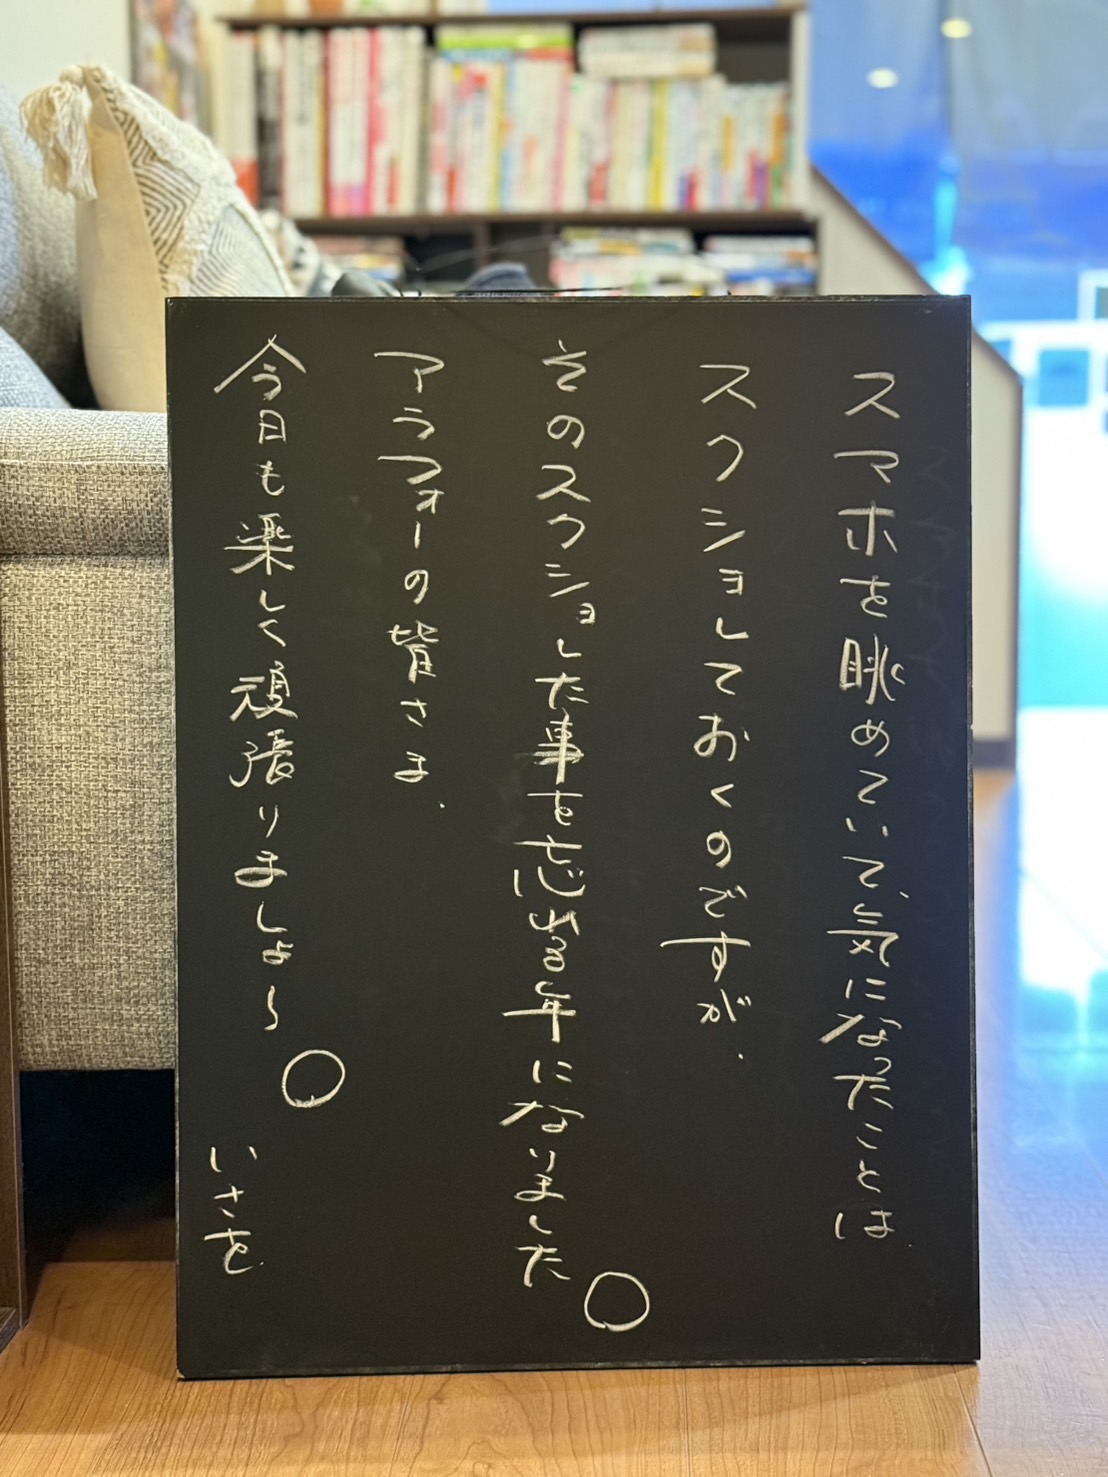 スマホを眺めていて、気になったことは、
スクショしておくのですが、
そのスクショした事を忘れる年になりました。
アラフォーの皆さま、
今日も楽しく頑張りましょ〜。
いさを